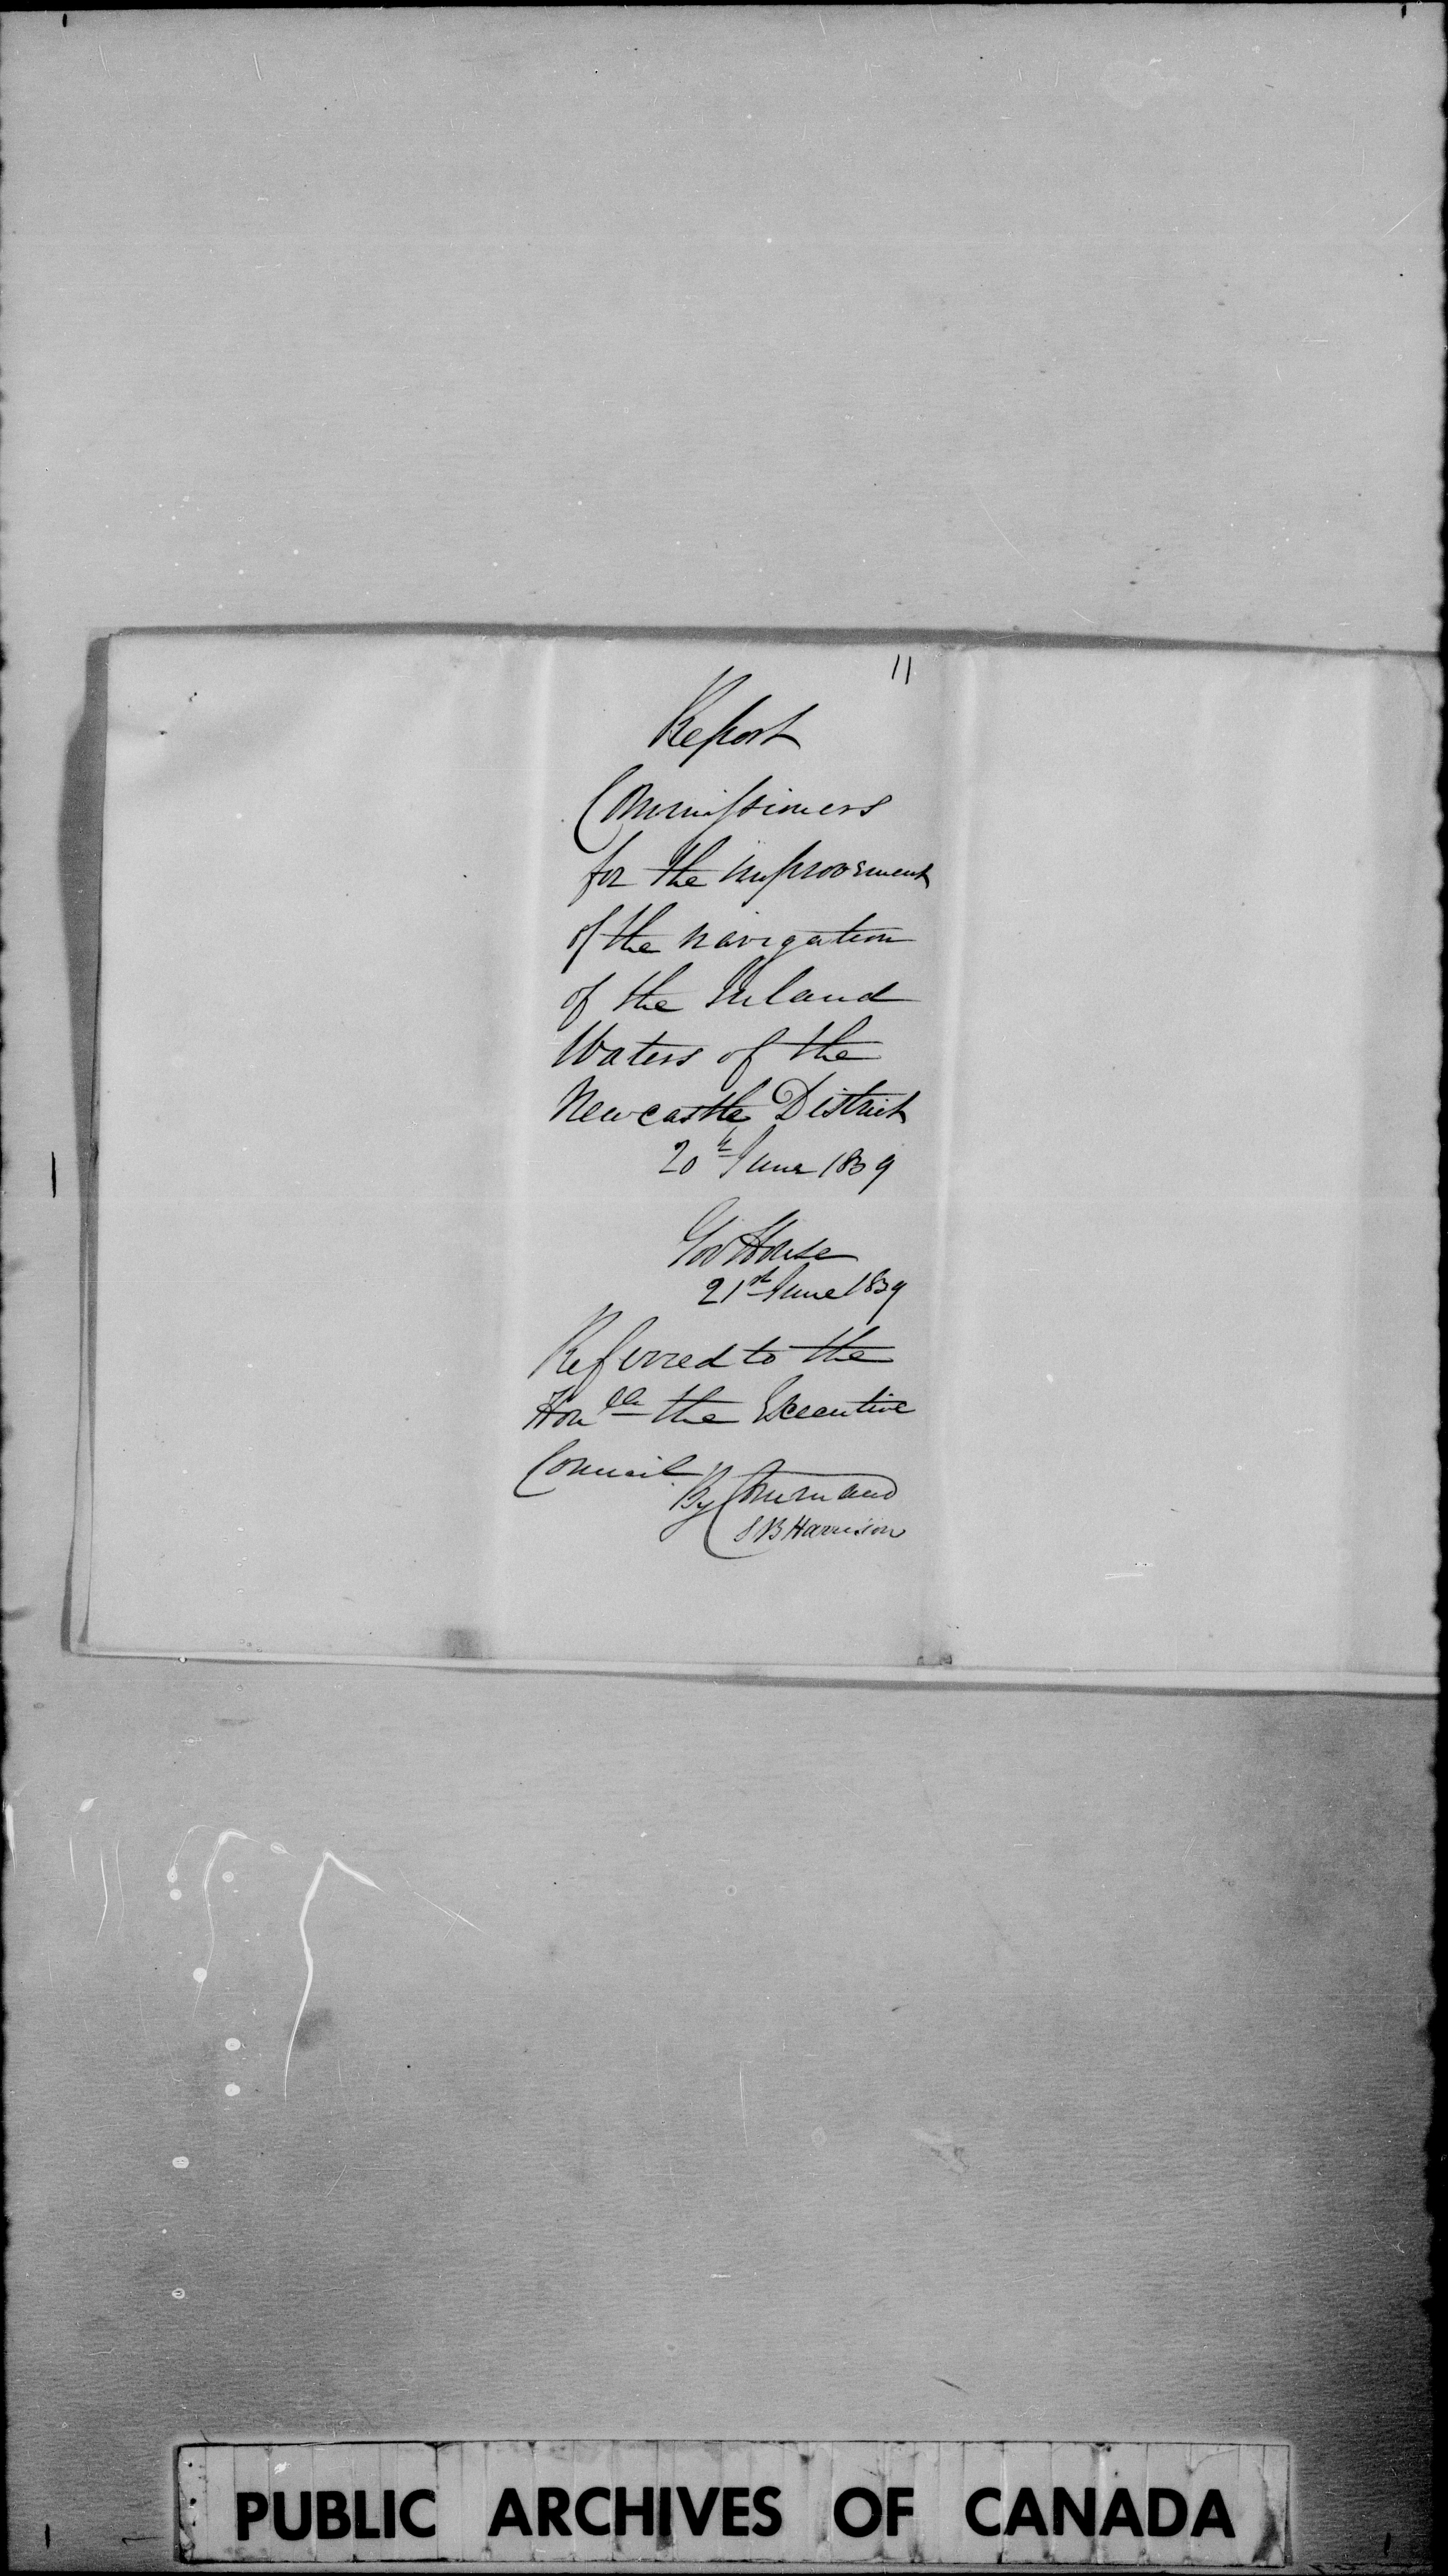 11
Report
Commissioners
for the improvement
of the navigation
of the Inland
Waters of the
Newcastle District
20th June 1839
Gov House
21st June 1839
Referred to the
Honble the Executive
Council
By Command
S B Harrison
PUBLIC ARCHIVES OF CANADA